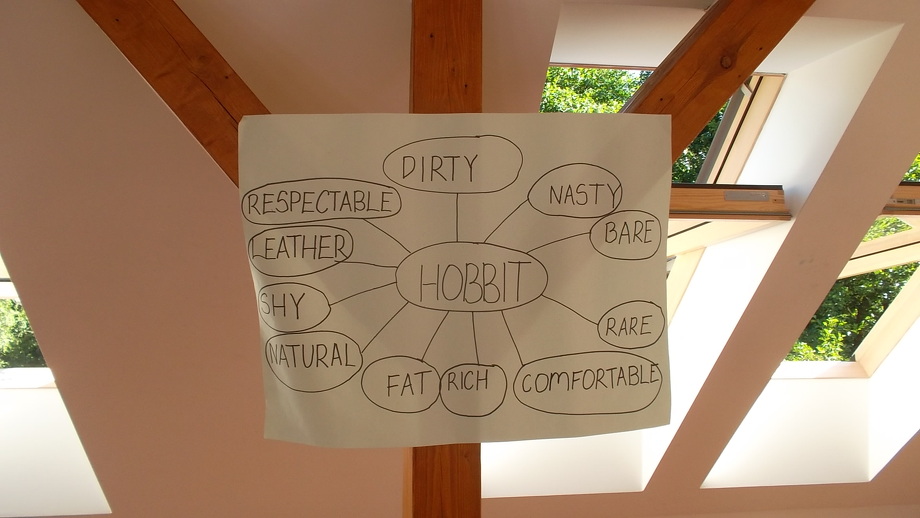 DIRTY
RESPECTABLE
NASTY
LEATHER
BARE
HOBBIT
SHY
RARE
NATURAL
FAT
RICH
COMFORTABLE